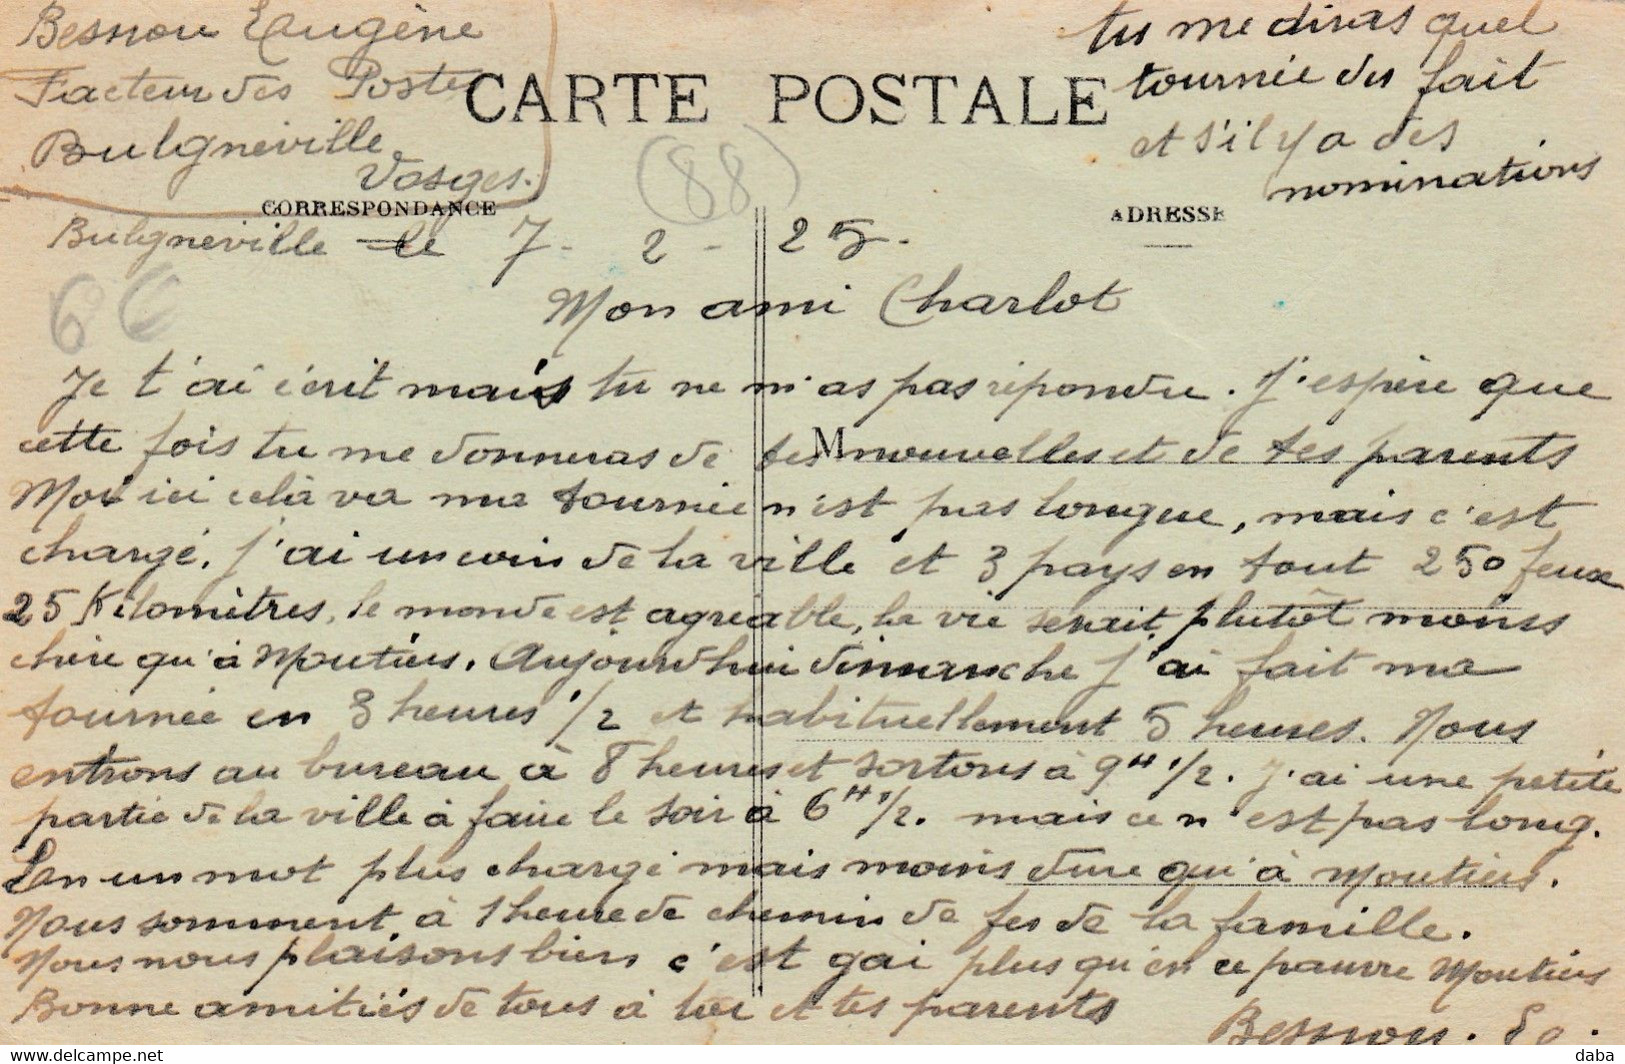 Besnou Eugène
Facteur des Poste
Bulgnéville
Vosges.
CARTE POSTALE
tu me diras quel
tournée du fait
et s'il y a des
nominations
(88)
CORRESPONDANCE
ADRESSE
Bulgnéville le 7 - 2 - 25.
6€
Mon ami Charlot
Je t'ai écrit mais tu ne m'as pas répondu. J'espère que
cette fois tu me donneras de tes nouvelles et de tes parents
M
Moi ici celà va ma tournée n'est pas longue, mais c'est
chargé. J'ai un coin de la ville et 3 pays en tout 250 feux
25 Kilomètres, le monde est agréable, la vie serait plutôt moins
chère qu'à Moutiers. Aujourd'hui dimanche j'ai fait ma
tournée en 3 heures 1/2 et habituellement 5 heures. Nous
entrons au bureau à 8 heures et sortons à 9H 1/2. J'ai une petite
partie de la ville à faire le soir à 6H 1/2. mais ce n'est pas long.
En un mot plus chargé mais moins dure qu'à Moutiers.
Nous somment à 1 heure de chemin de fer de la famille.
Nous nous plaisons bien c'est gai plus qu'en ce pauvre Moutiers
Bonne amitiés de tous à toi et tes parents
Besnou.
daba
delcampe.net